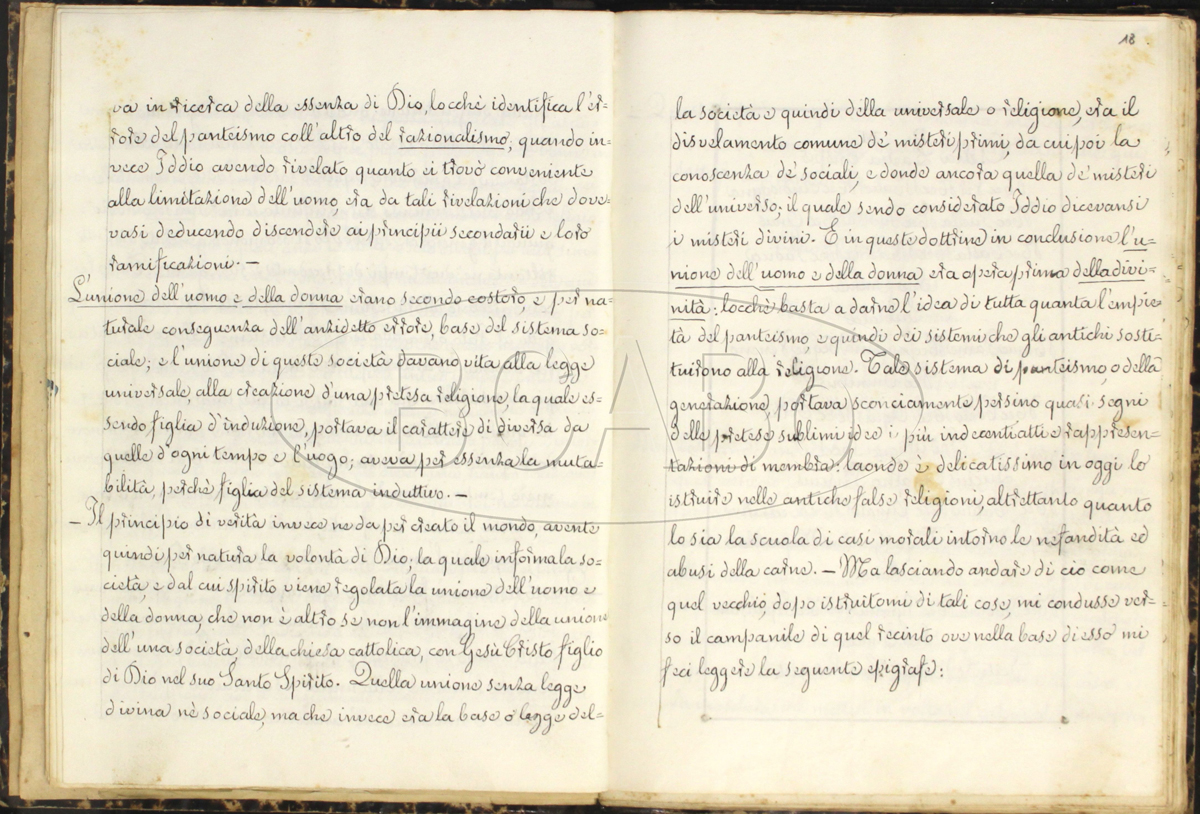 va in ricerca della essenza di Dio, locchè identifica l'er=
rore del panteismo coll'altro del razionalismo; quando in=
vece Iddio avendo rivelato quanto ei trovò conveniente
alla limitazione dell'uomo, era da tali rivelazioni che dove=
vasi deducendo discendere ai principii secondarii e loro
ramificazioni. —
L'unione dell'uomo e della donna erano secondo costoro, e per na=
turale conseguenza dell'anzidetto errore, base del sistema so=
ciale; e l'unione di queste società davano vita alla legge
universale, alla creazione d'una pretesa religione, la quale es=
sendo figlia d'induzione, portava il carattere di diversa da
quelle d'ogni tempo e luogo; aveva per essenza la muta=
bilità, perchè figlia del sistema induttivo. —
— Il principio di verità invece ne da per creato il mondo, avente
quindi per natura la volontà di Dio; la quale informa la so=
cietà, e dal cui spirito viene regolata la unione dell'uomo e
della donna, che non è altro se non l'immagine della unione
dell'una società, della chiesa cattolica, con Gesù Cristo figlio
di Dio nel suo Santo Spirito. Quella unione senza legge
divina nè sociale, ma che invece era la base o legge del=
18
la società e quindi della universale o religione, era il
disvelamento comune de' misteri primi, da cui poi la
conoscenza de' sociali, e donde ancora quella de' misteri
dell'universo; il quale sendo considerato Iddio dicevansi
i misteri divini. E in queste dottrine in conclusione l'u=
nione dell'uomo e della donna era opera prima della divi=
nità: locchè basta a darne l'idea di tutta quanta l'empie=
tà del panteismo, e quindi dei sistemi che gli antichi sosti=
tuirono alla religione. Tale sistema di panteismo, o della
generazione, portava sconciamente persino quasi segni
delle pretese sublimi idee i più indecenti atti e rappresen=
tazioni di membra: laonde è delicatissimo in oggi lo
istruire nelle antiche false religioni, altrettanto quanto
lo sia la scuola di casi morali intorno le nefandità ed
abusi della carne. — Ma lasciando andare di ciò come
quel vecchio, dopo istruitomi di tali cose, mi condusse ver=
so il campanile di quel recinto ove nella base di esso mi
feci leggere la seguente epigrafe:
BCAB